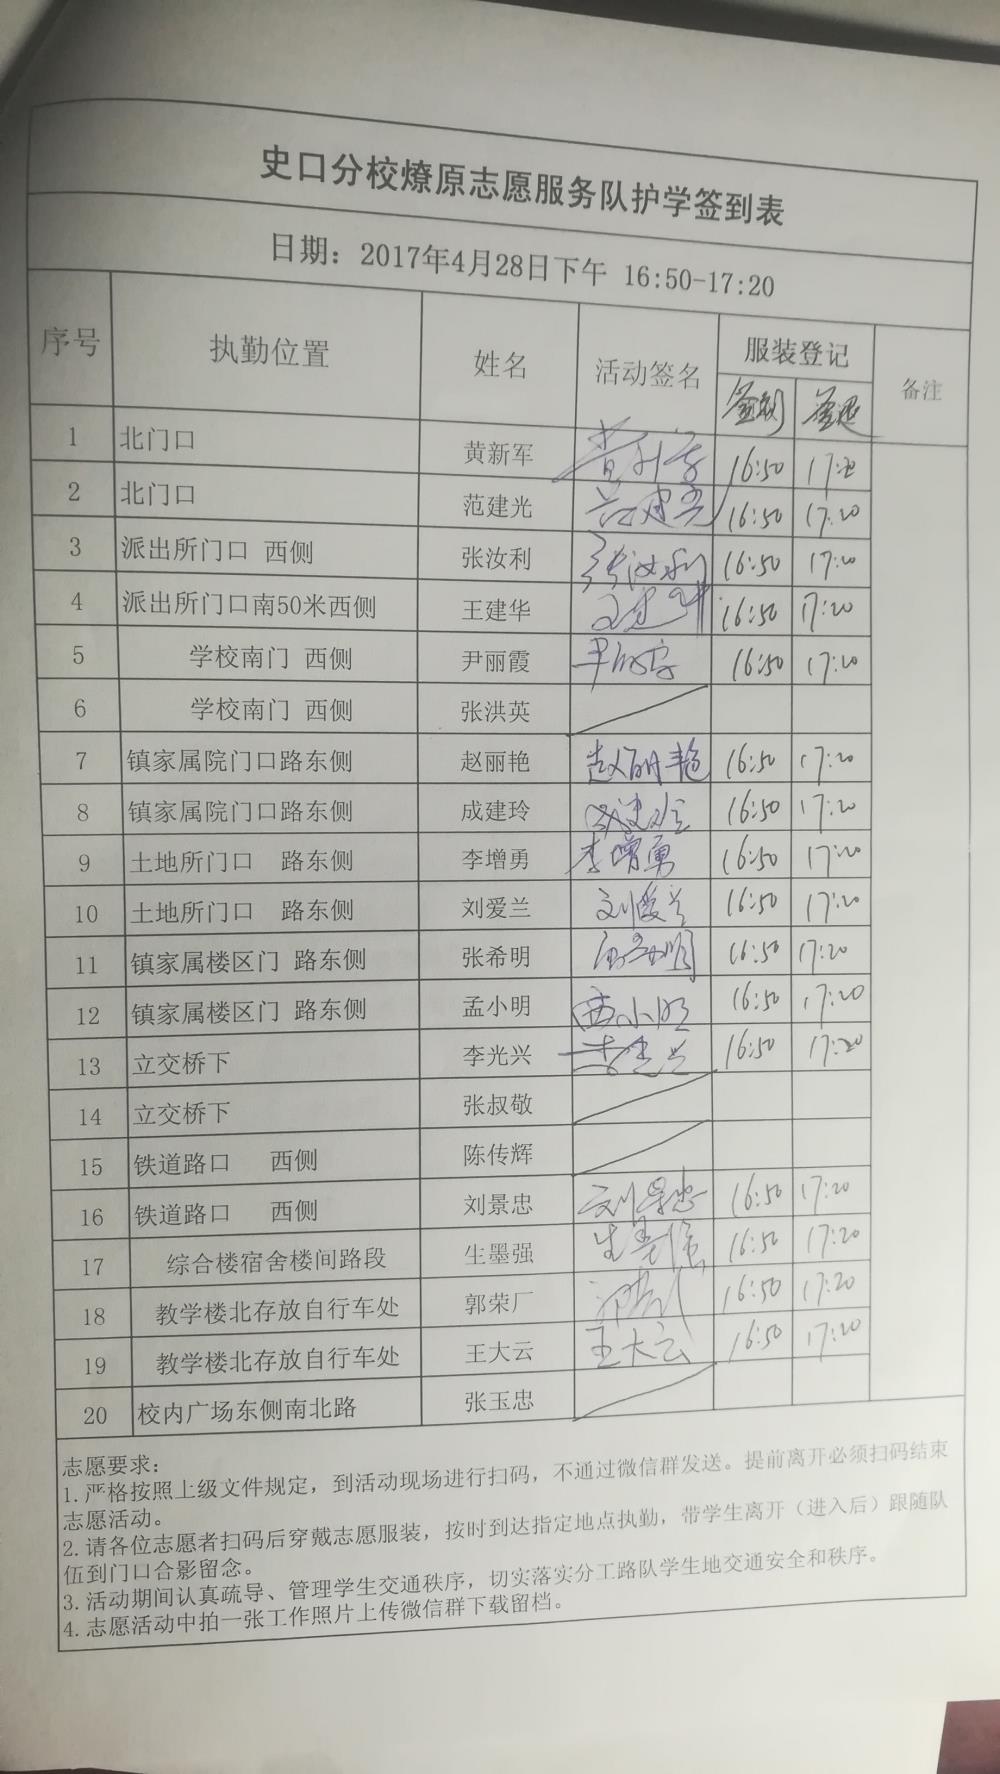 史口分校燎原志愿服务队护学签到表
日期：2017年4月28日下午 16:50-17:20
序号 执勤位置 姓名 活动签名 服装登记 备注
签到 签退
1 北门口 黄新军 16:50 17:20
2 北门口 范建光 范建光 16:50 17:20
3 派出所门口 西侧 张汝利 张汝利 16:50 17:20
4 派出所门口南50米西侧 王建华 王建华 16:50 17:20
5 学校南门 西侧 尹丽霞 16:50 17:20
6 学校南门 西侧 张洪英
7 镇家属院门口路东侧 赵丽艳 赵丽艳 16:50 17:20
8 镇家属院门口路东侧 成建玲 成建玲 16:50 17:20
9 土地所门口 路东侧 李增勇 李增勇 16:50 17:20
10 土地所门口 路东侧 刘爱兰 刘爱兰 16:50 17:20
11 镇家属楼区门 路东侧 张希明 16:50 17:20
12 镇家属楼区门 路东侧 孟小明 孟小明 16:50 17:20
13 立交桥下 李光兴 李光兴 16:50 17:20
14 立交桥下 张叔敬
15 铁道路口 西侧 陈传辉
16 铁道路口 西侧 刘景忠 刘景忠 16:50 17:20
17 综合楼宿舍楼间路段 生墨强 生墨强 16:50 17:20
18 教学楼北存放自行车处 郭荣厂 16:50 17:20
19 教学楼北存放自行车处 王大云 王大云 16:50 17:20
20 校内广场东侧南北路 张玉忠
志愿要求：
1.严格按照上级文件规定，到活动现场进行扫码，不通过微信群发送。提前离开必须扫码结束
志愿活动。
2.请各位志愿者扫码后穿戴志愿服装，按时到达指定地点执勤，带学生离开（进入后）跟随队
伍到门口合影留念。
3.活动期间认真疏导、管理学生交通秩序，切实落实分工路队学生地交通安全和秩序。
4.志愿活动中拍一张工作照片上传微信群下载留档。